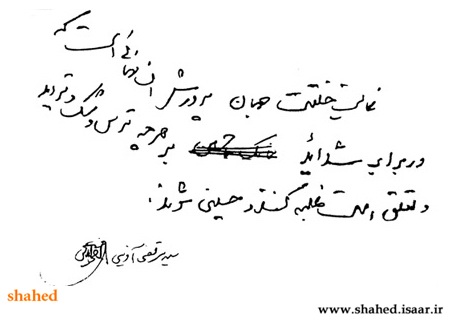 غایت خلقت جهان پرورش انسانهائی است که
در برابر شدائد بر هر چه ترس و شک و تردید
و تعلق است غلبه کنند و حسینی شوند.
سید مرتضی آوینی
shahed
www.shahed.isaar.ir